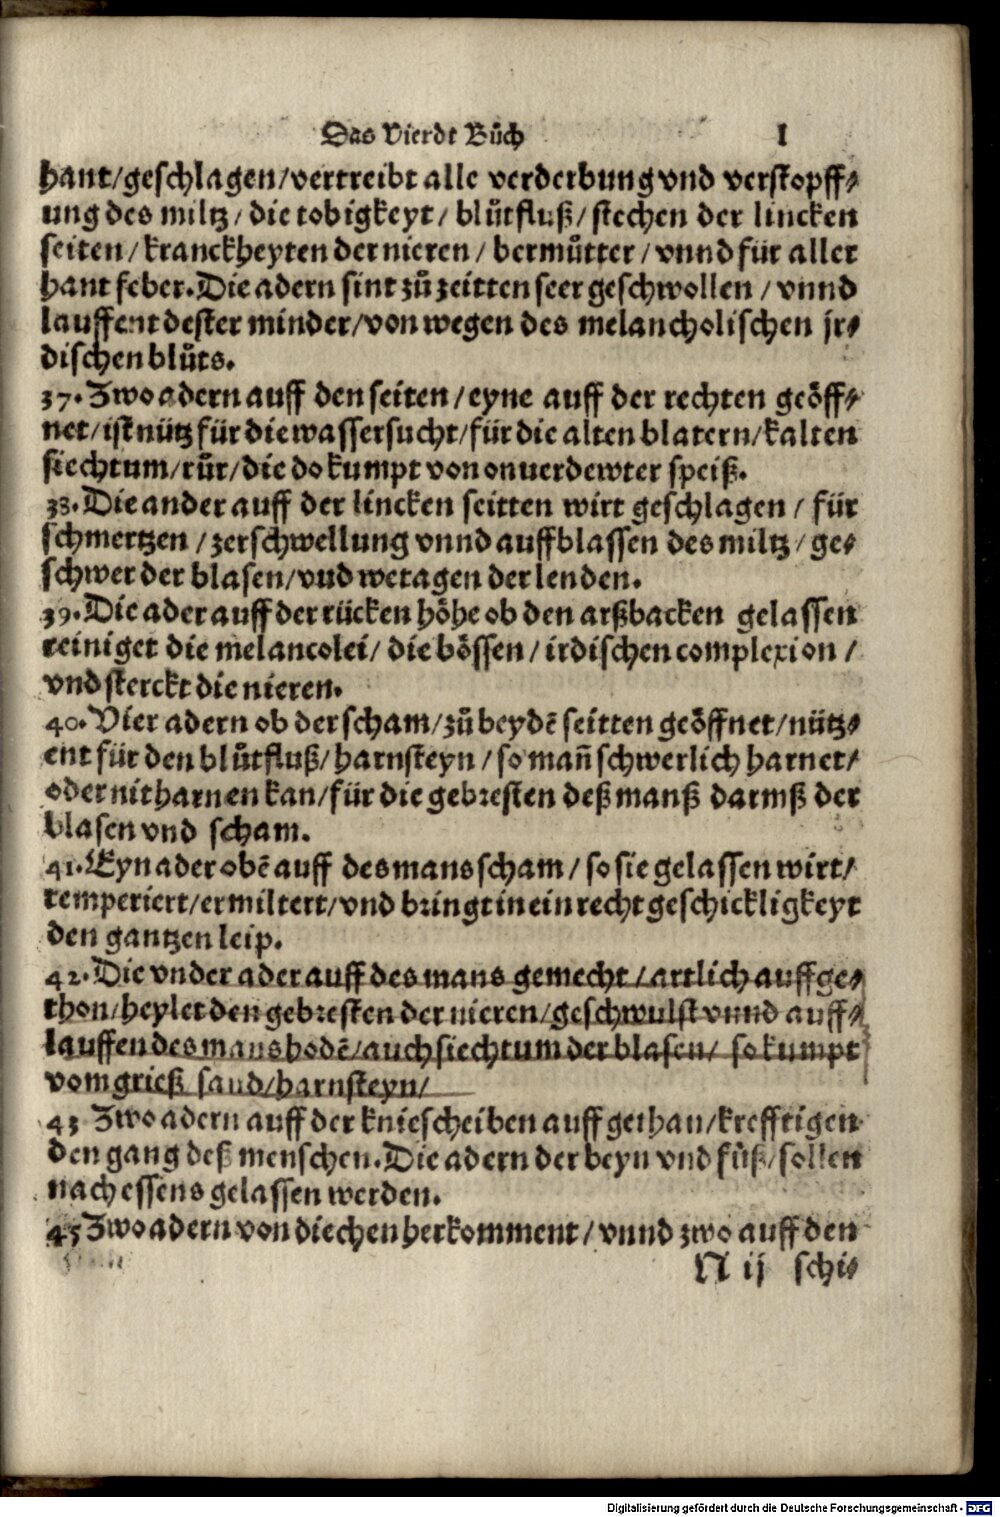 Das Vierdt Bůch I
hant/geschlagen/vertreibt alle verderbung vnd verstopff⸗
ung des miltz/ die tobigkeyt/ blůtfluß/ stechen der lincken
seiten/ kranckheyten der nieren/ bermůtter/ vnnd für aller
hant feber. Die adern sint zů zeitten seer geschwollen/ vnnd
lauffent dester minder/von wegen des melancholischen jr⸗
dischen blůts.
37. Zwo adern auff den seiten/ eyne auff der rechten geöff⸗
net/ist nütz für die wassersucht/für die alten blatern/kalten
siechtum/růr/die do kumpt von onuerdewter speiß.
38. Die ander auff der lincken seitten wirt geschlagen/ für
schmertzen/zerschwellung vnnd auffblassen des miltz/ ge⸗
schwer der blasen/vnd wetagen der lenden.
39. Die ader auff der rücken höhe ob den arßbacken gelassen
reiniget die melancolei/ die bössen/ irdischen complexion/
vnd sterckt die nieren.
40. Vier adern ob der scham/zů beydē seitten geöffnet/nütz⸗
ent für den blůtfluß/harnsteyn/so man̄ schwerlich harnet/
oder nit harnen kan/für die gebresten deß manß darmß der
blasen vnd scham.
41. Eyn ader obē auff des mans scham/ so sie gelassen wirt/
temperiert/ermiltert/vnd bringt in ein recht geschickligkeyt
den gantzen leip.
42. Die vnder ader auff des mans gemecht/artlich auffge⸗
thon/heylet den gebresten der nieren/geschwulst vnnd auff⸗
lauffen des mans hodē/auch siechtum der blasen/ so kumpt
vom grieß sand/harnsteyn/
43 Zwo adern auff der kniescheiben auff gethan/krefftigen
den gang deß menschen. Die adern der beyn vnd fůß/sollen
nach essens gelassen werden.
45 Zwo adern von diechen herkomment/ vnnd zwo auff den
N ij schi⸗
Digitalisierung gefördert durch die Deutsche Forschungsgemeinschaft - DFG